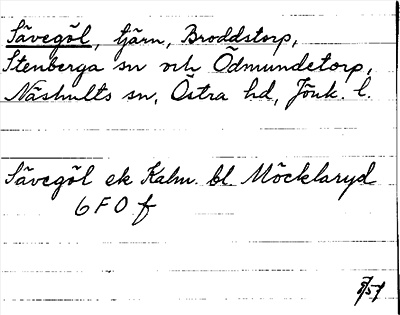 Sävegöl, tjärn, Broddstorp,
Stenberga sn och Ödmundetorp,
Näshults sn, Östra hd, Jönk. l.
Sävegöl ek Kalm. bl. Möcklaryd
6 F O f